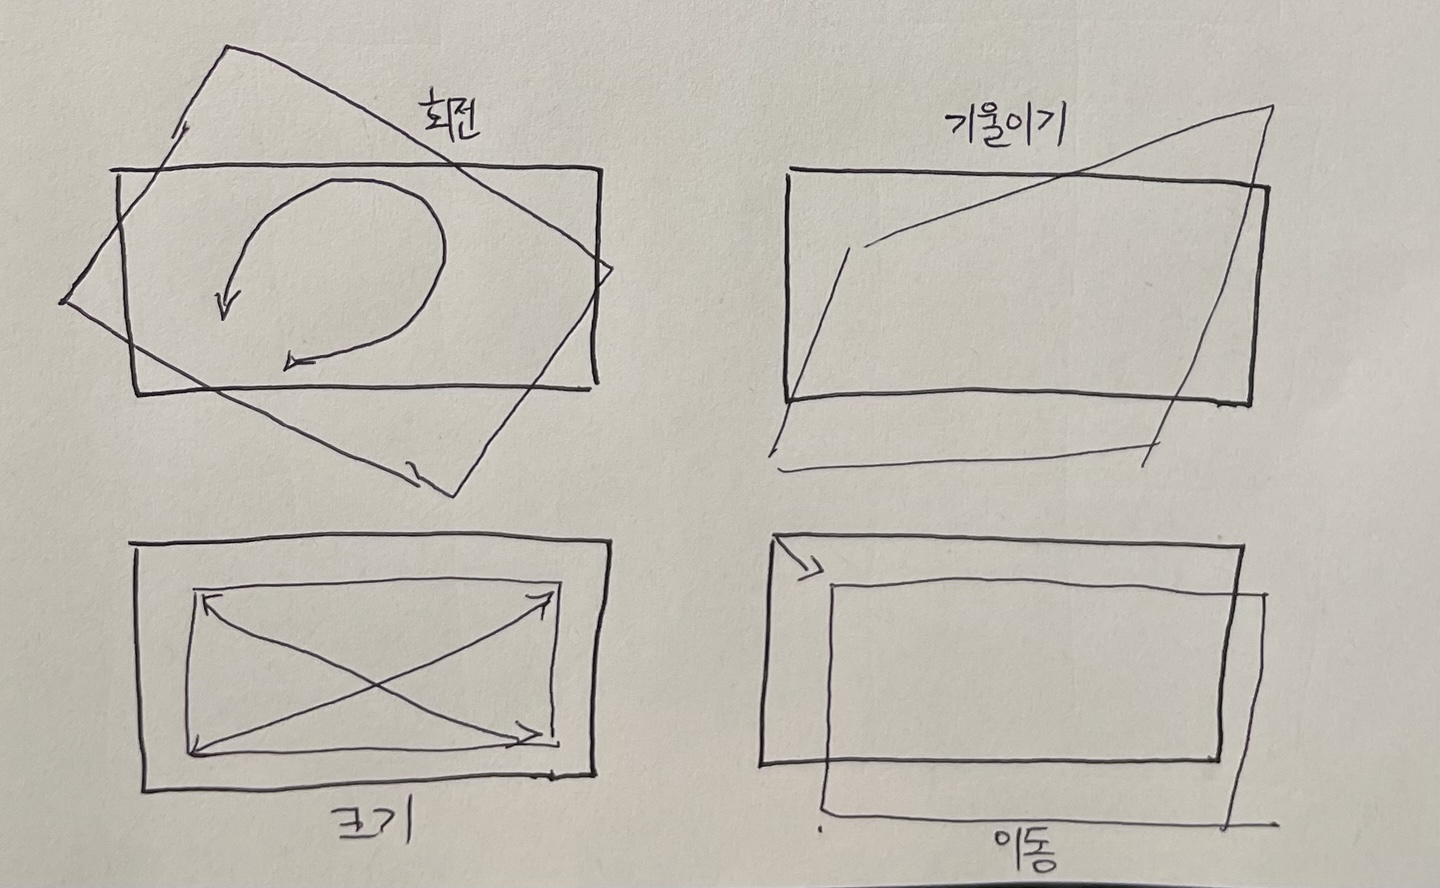 회전
기울이기
크기
이동